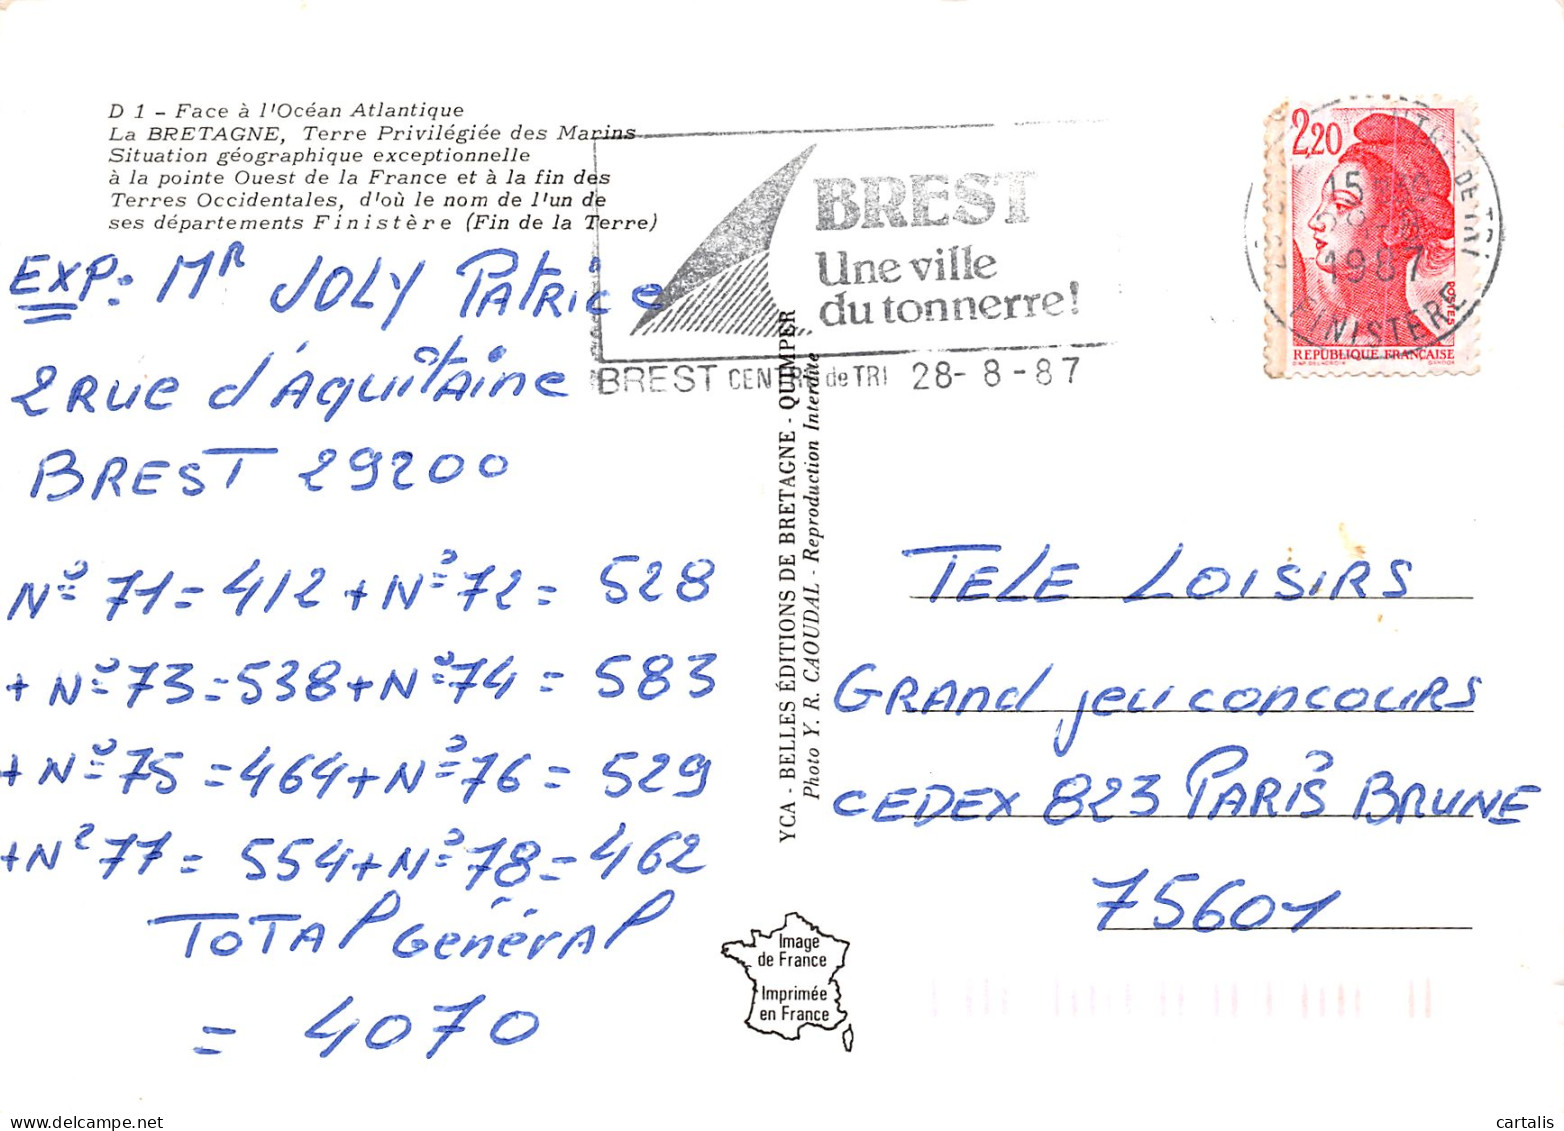 D 1 - Face à l'Océan Atlantique
La BRETAGNE, Terre Privilégiée des Marins
Situation géographique exceptionnelle
à la pointe Ouest de la France et à la fin des
Terres Occidentales, d'où le nom de l'un de
ses départements Finistère (Fin de la Terre)
EXP: Mr JOLY Patrice
2 Rue d'Aquitaine
BREST 29200
N° 71 = 412 + N° 72 = 528
+ N° 73 = 538 + N° 74 = 583
+ N° 75 = 464 + N° 76 = 529
+ N° 77 = 554 + N° 78 = 462
TOTAl Général
= 4070
BREST
Une ville
du tonnerre!
BREST CENTRE de TRI 28-8-87
2,20
POSTES
REPUBLIQUE FRANÇAISE
15
1987
FINISTERE
YCA - BELLES ÉDITIONS DE BRETAGNE - QUIMPER
Photo Y. R. CAOUDAL - Reproduction Interdite
TELE LOISIRS
GRAND jeu concours
CEDEX 823 PARIS BRUNE
75601
Image
de France
Imprimée
en France
cartalis | Delcampe.net